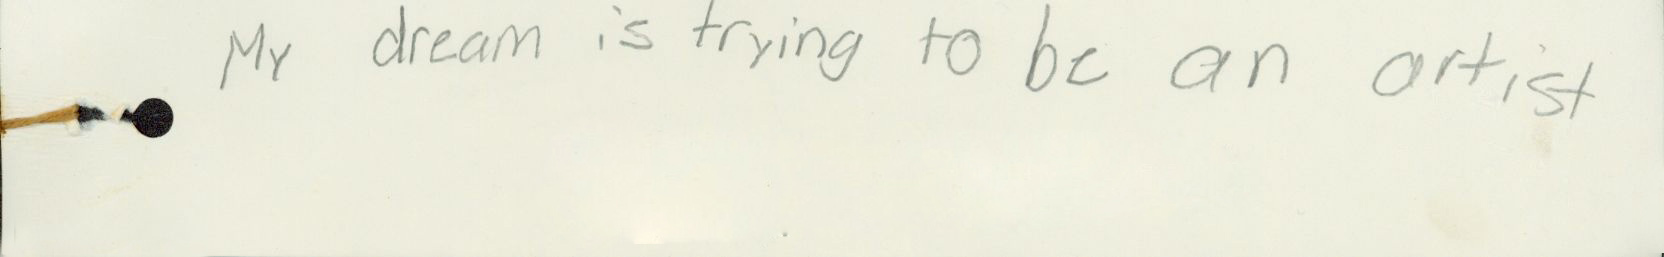 My dream is trying to be an artist